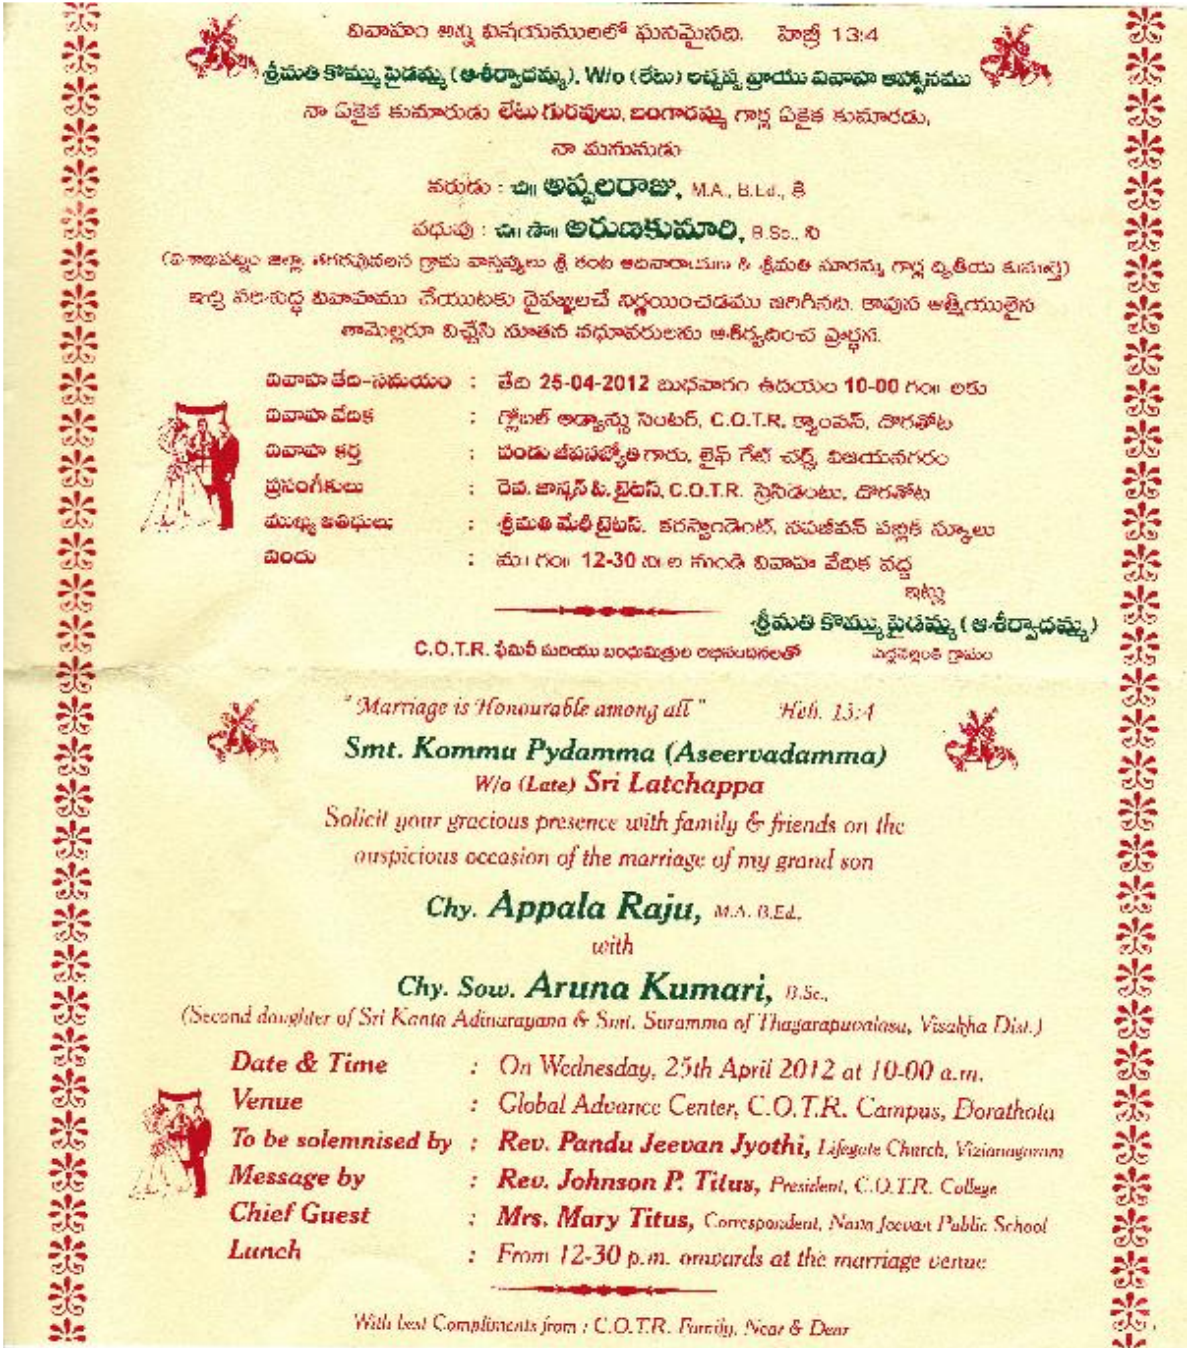 వివాహం అన్ని విషయములలో ఘనమైనది. హెబ్రీ 13:4
శ్రీమతి కొమ్ము పైడమ్మ (ఆశీర్వాదమ్మ), W/o (లేటు) లచ్చప్ప వ్రాయు వివాహ ఆహ్వానము
నా ఏకైక కుమారుడు లేటు గురవులు, బంగారమ్మ గార్ల ఏకైక కుమారుడు,
నా మనుమడు
వరుడు : చి॥ అప్పలరాజు, M.A., B.Ed., కి
వధువు : చి॥ సౌ॥ అరుణకుమారి, B.Sc., ని
(విశాఖపట్నం జిల్లా తగరపువలస గ్రామ వాస్తవ్యులు శ్రీ కంట ఆదినారాయణ & శ్రీమతి సూరమ్మ గార్ల ద్వితీయ కుమార్తె)
ఇచ్చి పరిశుద్ధ వివాహము చేయుటకు దైవజ్ఞులచే నిర్ణయించడము జరిగినది. కావున ఆత్మీయులైన
తామెల్లరూ విచ్చేసి నూతన వధూవరులను ఆశీర్వదించ ప్రార్థన.
వివాహ తేది-సమయం : తేది 25-04-2012 బుధవారం ఉదయం 10-00 గం॥ లకు
వివాహ వేదిక : గ్లోబల్ అడ్వాన్సు సెంటర్, C.O.T.R. క్యాంపస్, దొరతోట
వివాహ కర్త : పండు జీవనజ్యోతి గారు, లైఫ్ గేట్ చర్చ్, విజయనగరం
ప్రసంగీకులు : రెవ. జాన్సన్ పి. టైటస్, C.O.T.R. ప్రెసిడెంటు, దొరతోట
ముఖ్య అతిథులు : శ్రీమతి మేరీ టైటస్, కరస్పాండెంట్, నవజీవన్ పబ్లిక్ స్కూలు
విందు : మ॥ గం॥ 12-30 ని॥ల నుండి వివాహ వేదిక వద్ద
ఇట్లు
శ్రీమతి కొమ్ము పైడమ్మ ( ఆశీర్వాదమ్మ )
C.O.T.R. ఫేమిలీ మరియు బంధుమిత్రుల అభినందనలతో గ్రామం
" Marriage is Honourable among all " Heb. 13:4
Smt. Kommu Pydamma (Aseervadamma)
W/o (Late) Sri Latchappa
Solicit your gracious presence with family & friends on the
auspicious occasion of the marriage of my grand son
Chy. Appala Raju, M.A. B.Ed.,
with
Chy. Sow. Aruna Kumari, B.Sc.,
(Second daughter of Sri Kanta Adinarayana & Smt. Suramma of Thagarapuvalasa, Visakha Dist.)
Date & Time : On Wednesday, 25th April 2012 at 10-00 a.m.
Venue : Global Advance Center, C.O.T.R. Campus, Dorathota
To be solemnised by : Rev. Pandu Jeevan Jyothi, Lifegate Church, Vizianagaram
Message by : Rev. Johnson P. Titus, President, C.O.T.R. College
Chief Guest : Mrs. Mary Titus, Correspondent, Nava Jeevan Public School
Lunch : From 12-30 p.m. onwards at the marriage venue
With best Compliments from : C.O.T.R. Family, Near & Dear